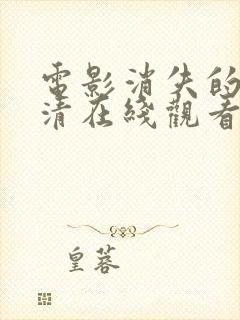 電影消失的
清在綫觀看
皇蓉